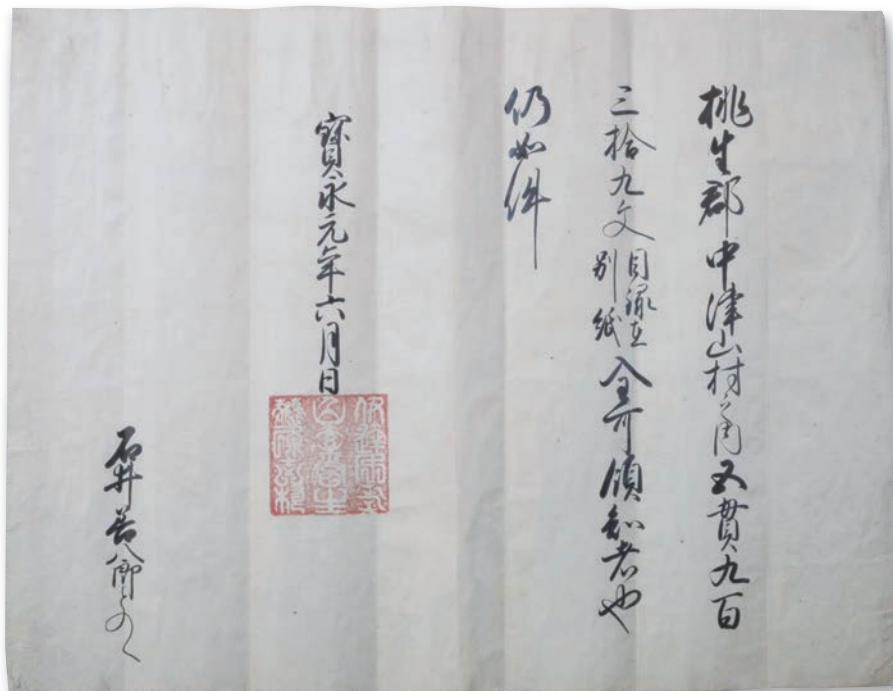 桃生郡中津山村之内五貫九百
三拾九文目録在別紙全可領知者也
仍如件
寳永元年六月日
石井善八郎とのへ